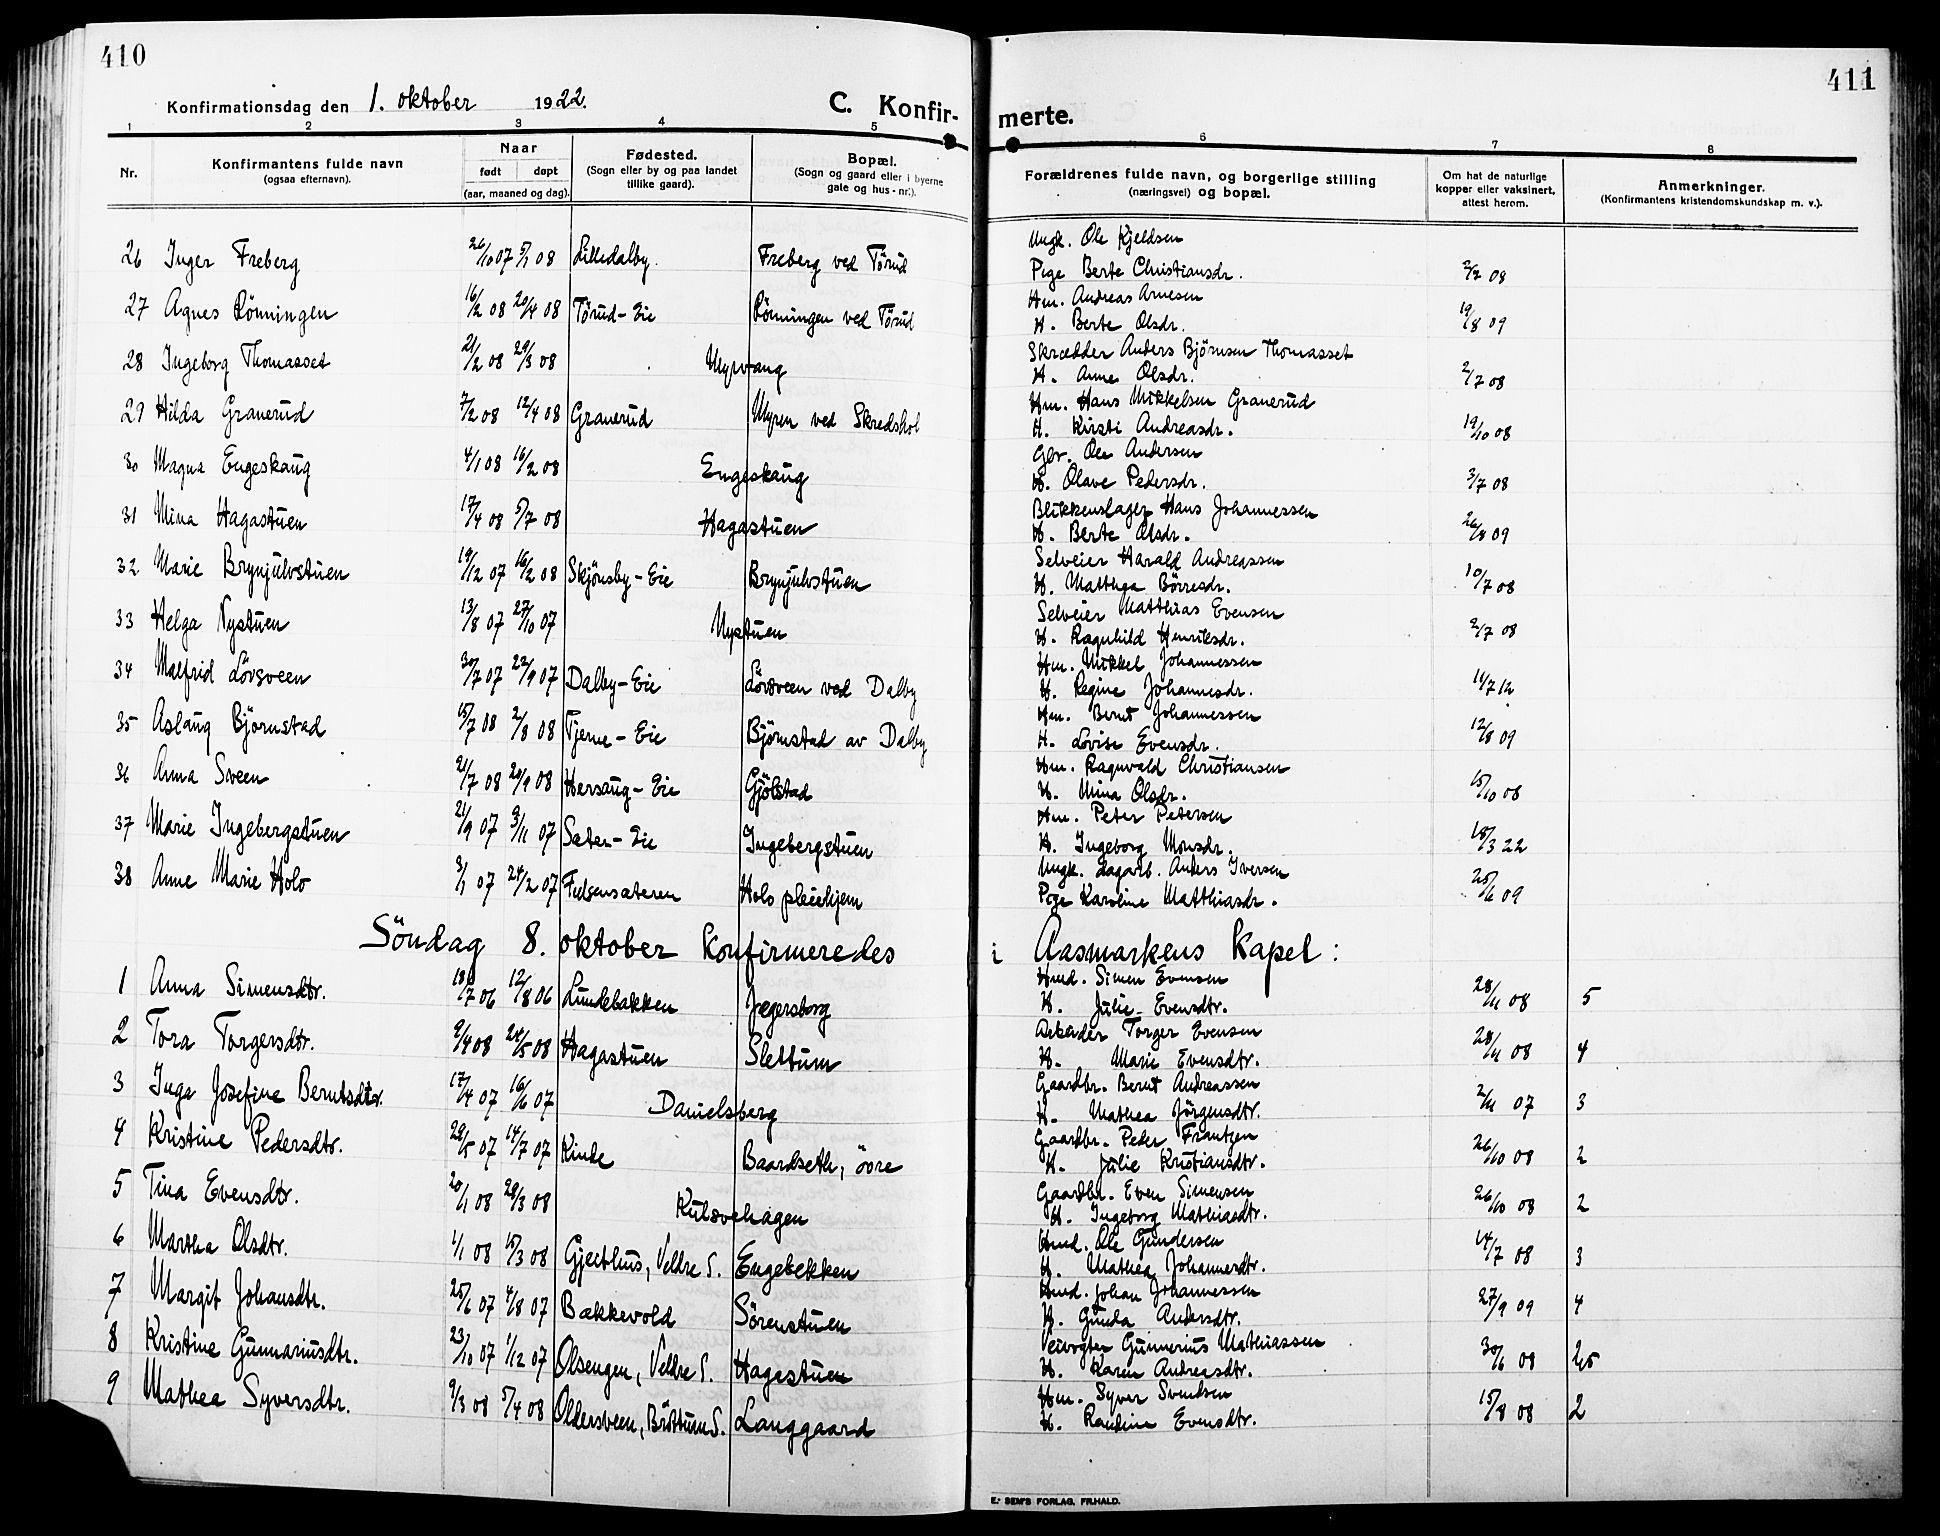 410
Konfirmationsdag den 1. oktober 1922.
C. Konfir-
1 2 3 4 5
Nr.
Konfirmantens fulde navn
(ogsaa efternavn).
Naar
født døpt
(aar, maaned og dag).
Fødested.
(Sogn eller by og paa landet
tillike gaard).
Bopæl.
(Sogn og gaard eller i byerne
gate og hus-nr.).
26 Inger Freberg 26/10 07 5/1 08 Lilledalby. Freberg ved Törud
27 Agnes Rönningen 16/2 08 20/4 08 Törud-Eie Rönningen ved Törud
28 Ingeborg Thomasset 21/2 08 29/3 08 Myrvang
29 Hilda Granerud 7/2 08 12/4 08 Granerud Myren ved Skredshol
30 Magna Engeskaug 4/1 08 16/2 08 Engeskaug
31 Mina Hagastuen 17/4 08 5/7 08 Hagastuen
32 Marie Brynjulvstuen 19/12 07 16/2 08 Skjönsby-Eie Brynjulvstuen
33 Helga Nystuen 13/8 07 27/10 07 Nystuen
34 Malfrid Lövsveen 30/7 07 22/9 07 Dalby-Eie Lövsveen ved Dalby
35 Aslaug Björnstad 15/7 08 2/8 08 Tjerne-Eie Björnstad av Dalby
36 Anna Sveen 21/7 08 20/9 08 Hersaug-Eie Gjölstad
37 Marie Ingebergstuen 21/9 07 3/11 07 Sæter-Eie Ingebergstuen
38 Anne Marie Holo 3/1 07 24/2 07 Holo pleiehjem
Söndag 8. oktober konfirmeredes
1 Anna Simensdtr. 18/7 06 12/8 06 Lundebakken Jægersborg
2 Tora Torgersdtr. 9/4 08 24/5 08 Hagastuen Slettum
3 Inga Josefine Berntsdtr. 17/4 07 16/6 07 Danielsberg
4 Kristine Pedersdtr. 14/7 07 Kinde Baardseth, övre
5 Tina Evensdtr. 20/1 08 28/3 08 Kulsvehagen
6 Martha Olsdtr. 1/1 08 15/3 08 Gjeethus, Veldre S. Engebekken
7 Margit Johansdtr. 25/6 07 4/8 07 Bækkevold Sörenstuen
8 Kristine Gunnariusdtr. 23/10 07 1/12 07 Olsengen, Veldre S. Hagestuen
9 Mathea Syversdtr. 9/3 08 5/4 08 Oldersveen, Bröttum S. Langgaard
411
merte.
6 7 8
Forældrenes fulde navn, og borgerlige stilling
(næringsvei) og bopæl.
Om hat de naturlige
kopper eller vaksinert,
attest herom.
Anmerkninger.
(Konfirmantens kristendomskundskap m. v.).
Ungk. Ole Kjeldsen
Pige Berte Christiansdr. 2/7 08
Hm. Andreas Arnesen
H. Berte Olsdr. 19/8 09
Skrædder Anders Björnsen Thomasset
H. Anne Olsdr. 2/7 08
Hm. Hans Mikkelsen Granerud
H. Kirsti Andreasdr. 19/10 08
Gbr. Ole Andersen
H. Olave Pedersdr. 3/7 08
Blikkenslager Hans Johannessen
H. Berte Olsdr. 26/8 09
Selveier Harald Andreassen
H. Matthea Börresdr. 10/7 08
Selveier Matthias Evensen
H. Ragnhild Henriksdr. 2/7 08
Hm. Mikkel Johannessen
H. Regine Johannesdr. 11/7 12
Hm. Bernt Johannessen
H. Lovise Evensdr. 12/8 09
Hm. Ragnvald Christiansen
H. Mina Olsdr. 15/10 08
Hm. Peter Petersen
H. Ingeborg Monsdr. 18/3 22
Ungk. Dagarb. Anders Iversen
Pige Karoline Matthiasdr. 25/6 09
i Aasmarkens Kapel:
Hmd. Simen Evensen
H. Julie Evensdtr. 28/11 08 5
Arbeider Torger Evensen
H. Marie Evensdtr. 28/11 08 4
Gaardbr. Bernt Andreassen
H. Mathea Jörgensdtr. 2/11 07 3
Gaardbr. Peder Frantzen
H. Julie Kristiansdtr. 26/10 08 2
Gaardbr. Even Simensen
H. Ingeborg Mathiasdtr. 26/10 08 2
Hmd. Ole Gundersen
H. Mathea Johannesdtr. 14/7 08 3
Hmd. Johan Johannessen
H. Gunda Andersdtr. 27/9 09 4
Veivogter Gunnerius Mathiassen
H. Karen Andreasdtr. 30/6 08 2,5
Hm. Syver Svendsen
H. Pauline Evensdtr. 15/8 08 2
E. SEM'S FORLAG, FR.HALD.